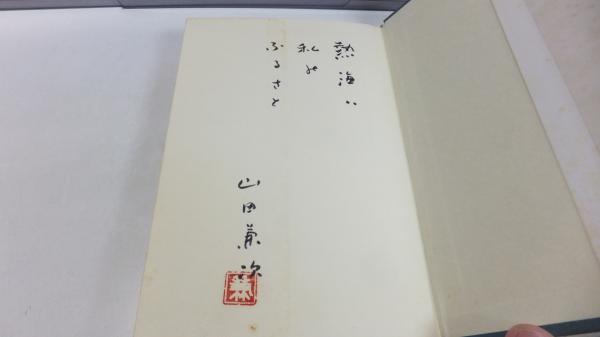 熱海は
私の
ふるさと
山田兼次